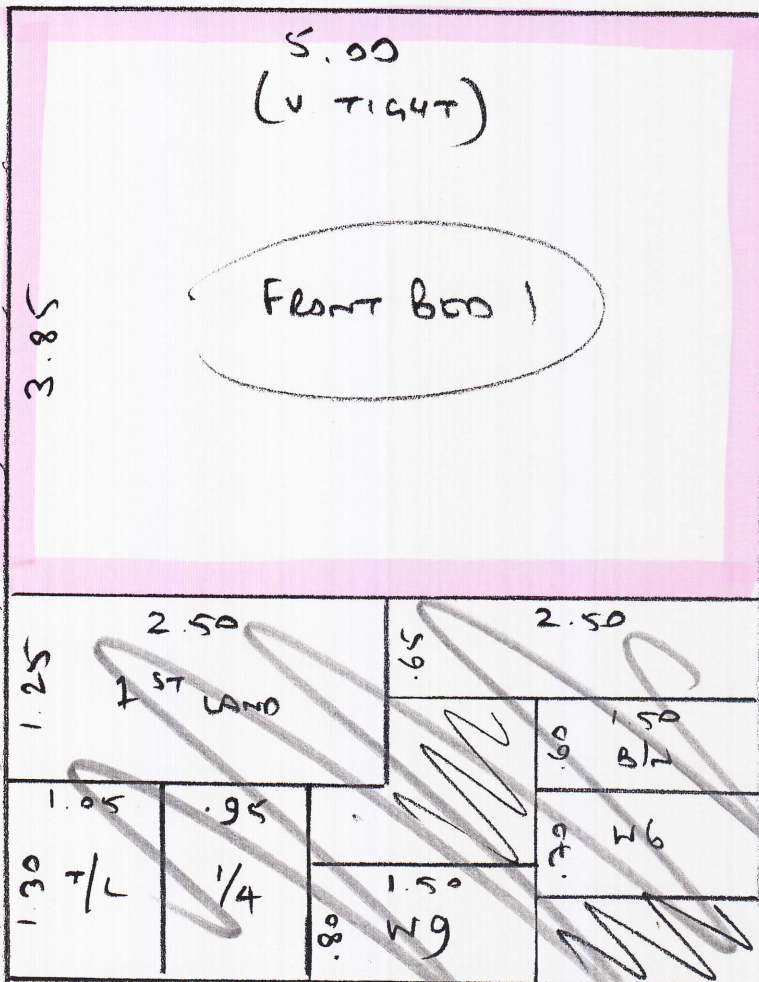 5.00
(V TIGHT)
3.85
FRONT BED 1
2.50
1.25
1ST LAND
2.50
.65
1.50
.60
B/N
.70
W6
1.05
1.30
T/L
.95
1/4
1.50
.80
W9